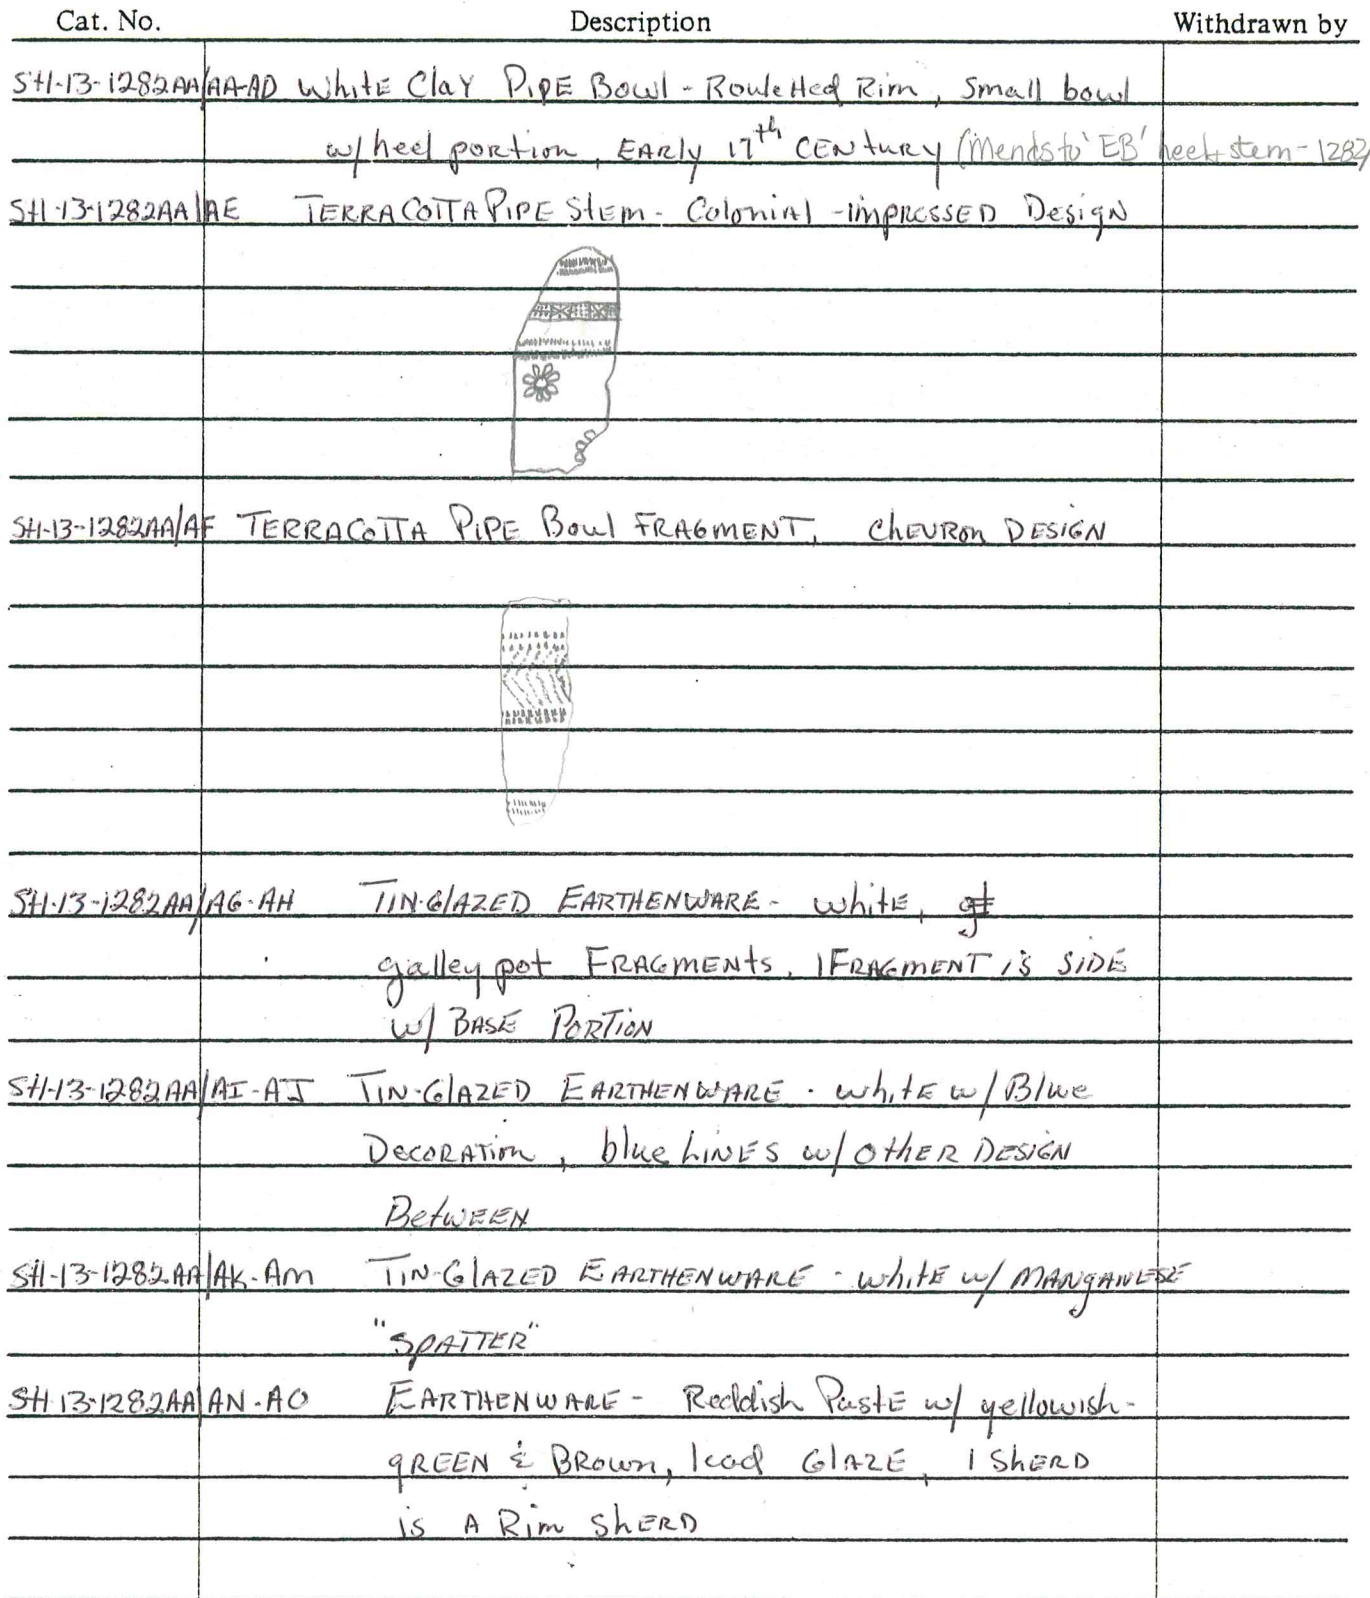 Cat. No. Description Withdrawn by
SH-13-1282AA/AA-AD White Clay Pipe Bowl - Rouletted Rim, Small bowl
w/ heel portion, EARLY 17th CENTURY (Mends to 'EB' heel + stem - 1282
SH-13-1282AA/AE TERRACOTTA PIPE Stem - Colonial - impressed Design
SH-13-1282AA/AF TERRACOTTA PIPE Bowl FRAGMENT, Chevron DESIGN
SH-13-1282AA/AG-AH TIN-GlAZED EARTHENWARE - white,
galley pot FRAGMENTS, 1 FRAGMENT is SIDE
w/ BASE PORTION
SH-13-1282AA/AI-AJ TIN-GlAZED EARTHENWARE - white w/ Blue
Decoration, blue LINES w/ other DESIGN
Between
SH-13-1282AA/AK-AM TIN-GlAZED EARTHENWARE - white w/ MANGANESE
"SPATTER"
SH-13-1282AA/AN-AO EARTHENWARE - Reddish Paste w/ yellowish-
GREEN & BROWN, lead GLAZE, 1 SHERD
is A Rim SHERD